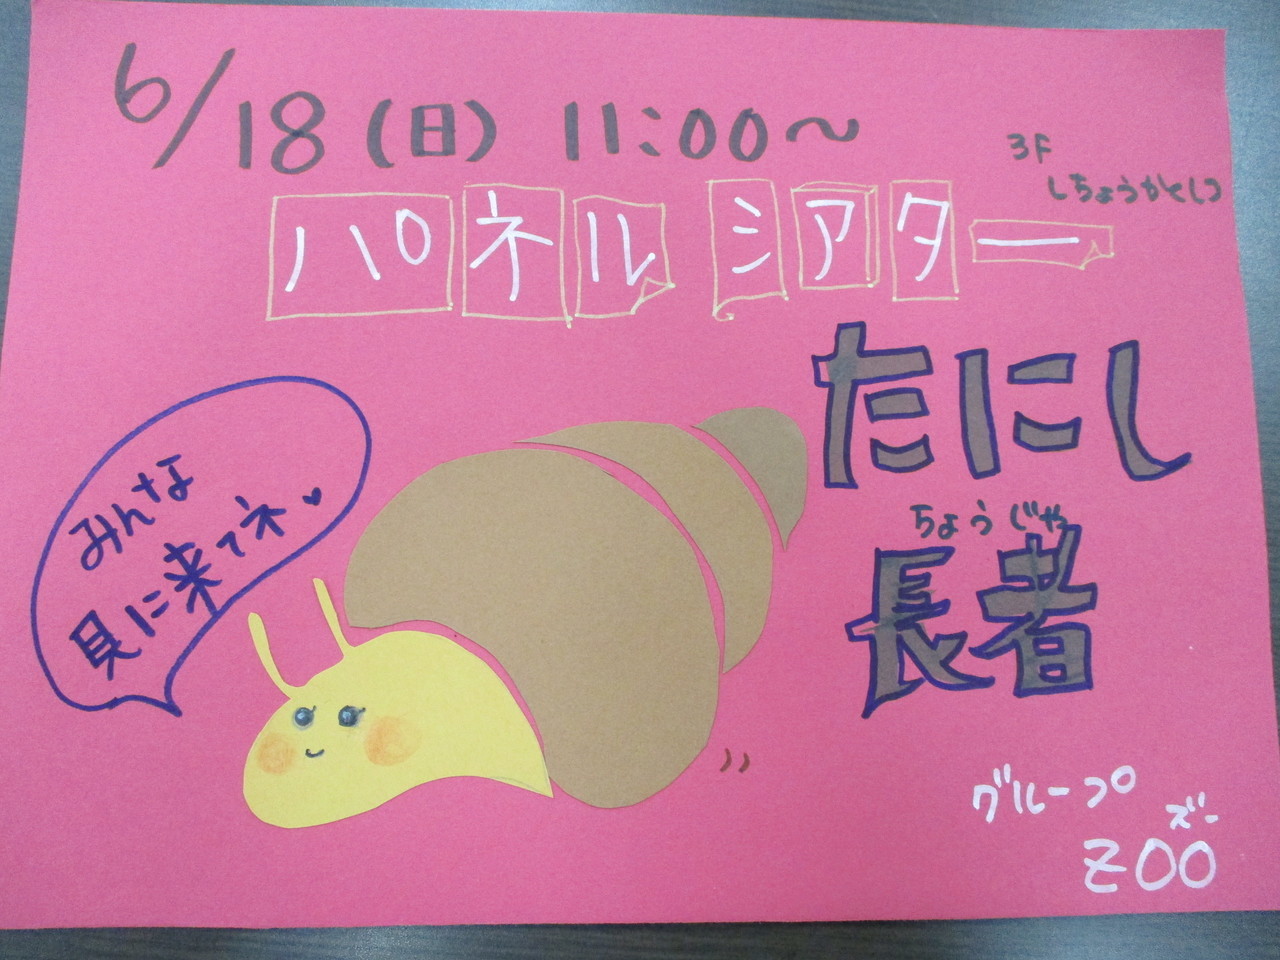 6/18(日) 11:00～
3F
しちょうかくしつ
パネル シアター
たにし
ちょうじゃ
長者
みんな
貝に来てネ♥
グループ
ズー
ZOO